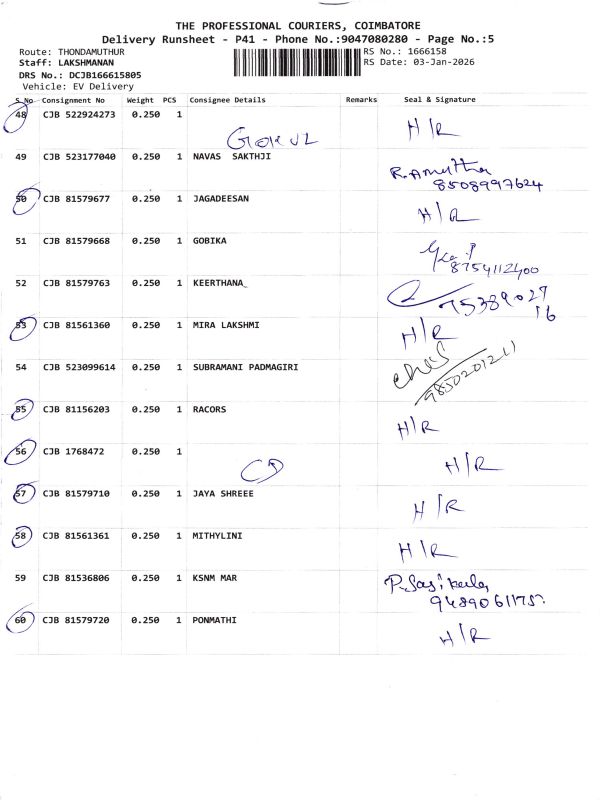 THE PROFESSIONAL COURIERS, COIMBATORE
Delivery Runsheet - P41 - Phone No.:9047080280 - Page No.:5
Route: THONDAMUTHUR
RS No.: 1666158
Staff: LAKSHMANAN
RS Date: 03-Jan-2026
DRS No.: DCJB166615805
Vehicle: EV Delivery
S.No Consignment No Weight PCS Consignee Details Remarks Seal & Signature
48 CJB 522924273 0.250 1 H/R
49 CJB 523177040 0.250 1 NAVAS SAKTHJI
R. Amutha
8508997624
50 CJB 81579677 0.250 1 JAGADEESAN H/R
51 CJB 81579668 0.250 1 GOBIKA
8754112400
52 CJB 81579763 0.250 1 KEERTHANA_
75389027
16
53 CJB 81561360 0.250 1 MIRA LAKSHMI H/R
54 CJB 523099614 0.250 1 SUBRAMANI PADMAGIRI
9850201211
55 CJB 81156203 0.250 1 RACORS H/R
56 CJB 1768472 0.250 1 H/R
57 CJB 81579710 0.250 1 JAYA SHREEE H/R
58 CJB 81561361 0.250 1 MITHYLINI H/R
59 CJB 81536806 0.250 1 KSNM MAR
60 CJB 81579720 0.250 1 PONMATHI H/R